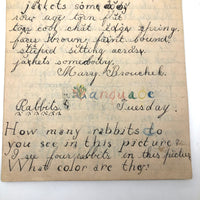 jackets some day
row age torn fit
too coy chat edge spring.
paw brown, faint sound
stupid sitting acords.
jackets somebody.
Mary Brouchek.
Language
Rabbits Tuesday.
How many rabbits do
you see in this picture
I see four rabbits in this picture
What color are they